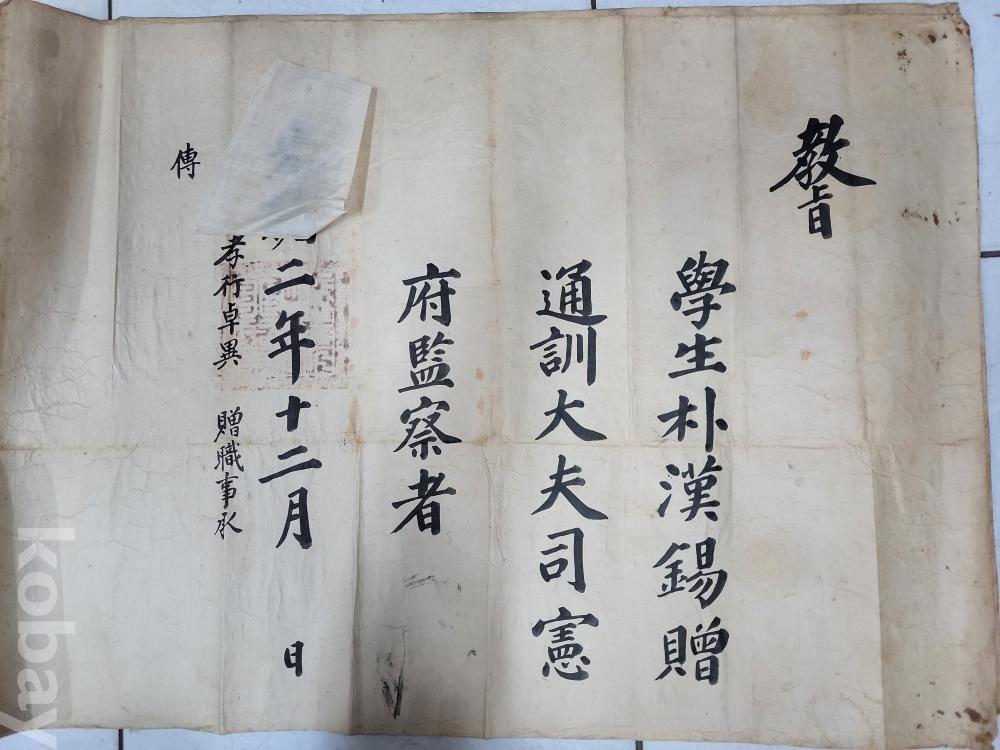 教旨
學生朴漢錫贈
通訓大夫司憲
府監察者
二年十二月 日
孝行卓異 贈職事承
傳
kobay